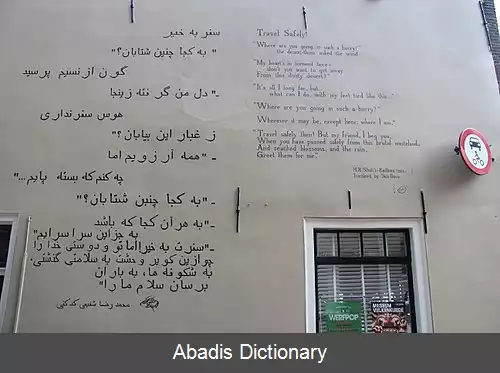 سفر به خیر
" به کجا چنین شتابان؟"
گون از نسیم پرسید
ـ" دل من گرفته زینجا
هوس سفر نداری
ز غبار این بیابان؟"
ـ"همه آرزویم اما
چه کنم که بسته پایم..."
ـ"به کجا چنین شتابان؟"
ـ"به هر آن کجا که باشد
به جز این سرا سرایم"
ـ"سفرت به خیر! اما تو و دوستی خدا را
چو ازین کویر وحشت به سلامتی گذشتی،
به شکوفه ها، به باران
برسان سلام ما را"
محمد رضا شفیعی کدکنی
Travel Safely!
"Where are you going in such a hurry?"
the desert-thorn asked the wind.
"My heart's in torment here-
don't you want to get away
From this dusty desert?"
"It's all I long for, but
what can I do, with my feet tied like this..."
"Where are you going in such a hurry?"
"Wherever it may be, except here, where I am."
"Travel safely then! But my friend, I beg you,
When you have passed safely from this brutal wasteland,
And reached blossoms, and the rain,
Greet them for me."
WERFPOP
MUSEUM
VOLKENKUNDE
Abadis Dictionary